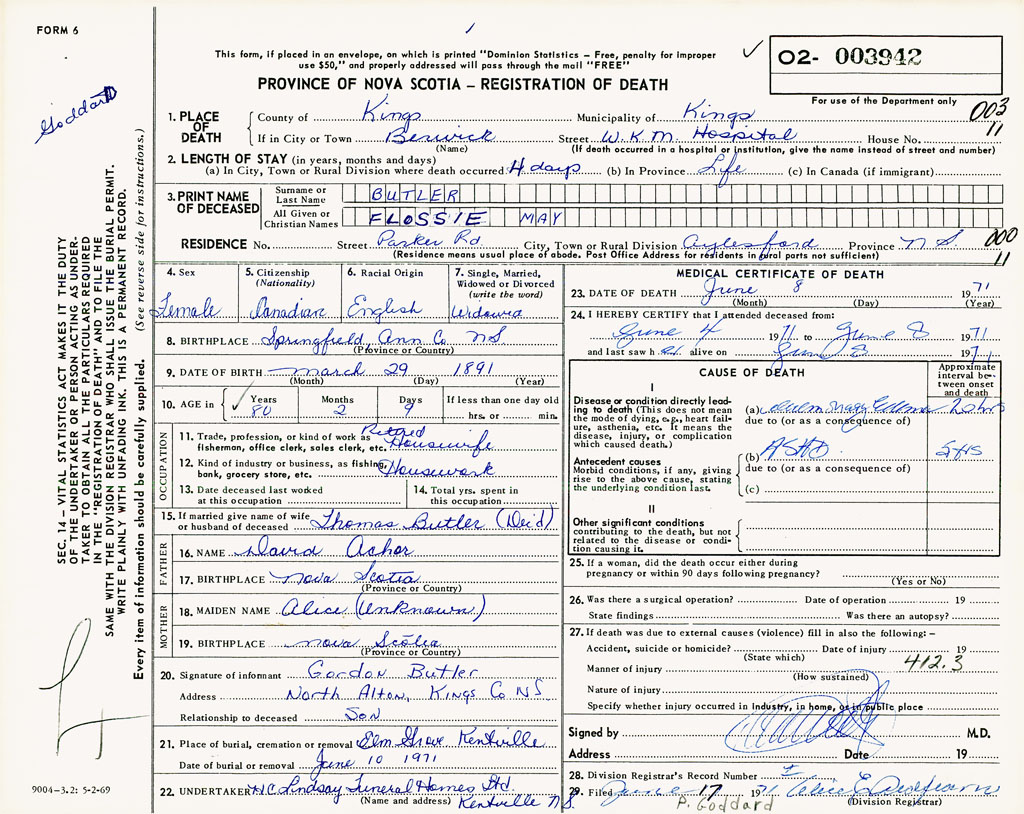 FORM 6
1
This form, if placed in an envelope, on which is printed "Dominion Statistics – Free, penalty for improper
use $50," and properly addressed will pass through the mail "FREE"
✓
O2- 003942
PROVINCE OF NOVA SCOTIA – REGISTRATION OF DEATH
For use of the Department only
Goddard
003
11
1. PLACE OF DEATH
County of Kings Municipality of Kings
If in City or Town Berwick Street W.K.M. Hospital House No.
(Name) (If death occurred in a hospital or institution, give the name instead of street and number)
2. LENGTH OF STAY (in years, months and days)
(a) In City, Town or Rural Division where death occurred 4 days (b) In Province Life (c) In Canada (if immigrant)
3. PRINT NAME OF DECEASED
Surname or Last Name BUTLER
All Given or Christian Names FLOSSIE MAY
RESIDENCE No. Street Parker Rd. City, Town or Rural Division Aylesford Province N.S.
000
11
(Residence means usual place of abode. Post Office Address for residents in rural parts not sufficient)
4. Sex
Female
5. Citizenship
(Nationality)
Canadian
6. Racial Origin
English
7. Single, Married,
Widowed or Divorced
(write the word)
Widowed
8. BIRTHPLACE Springfield, Ann Co NS
(Province or Country)
9. DATE OF BIRTH march 29 1891
(Month) (Day) (Year)
10. AGE in ✓ Years Months Days If less than one day old
80 2 9 hrs. or min.
OCCUPATION
11. Trade, profession, or kind of work as Retired
fisherman, office clerk, sales clerk, etc. Housewife
12. Kind of industry or business, as fishing, Housework
bank, grocery store, etc.
13. Date deceased last worked
at this occupation
14. Total yrs. spent in
this occupation
15. If married give name of wife
or husband of deceased Thomas Butler (Dec'd)
FATHER
16. NAME David Acker
17. BIRTHPLACE nova Scotia
(Province or Country)
MOTHER
18. MAIDEN NAME Alice (Unknown)
19. BIRTHPLACE nova Scotia
(Province or Country)
20. Signature of informant Gordon Butler
Address North Alton, Kings Co NS
Relationship to deceased Son
21. Place of burial, cremation or removal Elm Grove Kentville
Date of burial or removal June 10 1971
22. UNDERTAKER Lindsay Funeral Homes Ltd.
(Name and address) Kentville N.S.
MEDICAL CERTIFICATE OF DEATH
23. DATE OF DEATH June 8 1971
(Month) (Day) (Year)
24. I HEREBY CERTIFY that I attended deceased from:
June 4 1971 to June 8 1971
and last saw h er alive on June 8 1971
CAUSE OF DEATH
Approximate
interval be-
tween onset
and death
I
Disease or condition directly lead-
ing to death (This does not mean
the mode of dying, e.g., heart fail-
ure, asthenia, etc. It means the
disease, injury, or complication
which caused death.)
(a)
due to (or as a consequence of)
(b) ASHD
Antecedent causes
Morbid conditions, if any, giving
rise to the above cause, stating
the underlying condition last.
due to (or as a consequence of)
(c)
II
Other significant conditions
contributing to the death, but not
related to the disease or condi-
tion causing it.
25. If a woman, did the death occur either during
pregnancy or within 90 days following pregnancy?
(Yes or No)
26. Was there a surgical operation? Date of operation 19
State findings Was there an autopsy?
27. If death was due to external causes (violence) fill in also the following: –
Accident, suicide or homicide? Date of injury 19
(State which) 412.3
Manner of injury
(How sustained)
Nature of injury
Specify whether injury occurred in industry, in home, or in public place
Signed by M.D.
Address Date 19
28. Division Registrar's Record Number
29. Filed June 17 1971 Alice E.
P. Goddard (Division Registrar)
SEC. 14 – VITAL STATISTICS ACT MAKES IT THE DUTY
OF THE UNDERTAKER OR PERSON ACTING AS UNDER-
TAKER TO OBTAIN ALL THE PARTICULARS REQUIRED
IN THE "REGISTRATION OF DEATH" AND TO FILE THE
SAME WITH THE DIVISION REGISTRAR WHO SHALL ISSUE THE BURIAL PERMIT.
WRITE PLAINLY WITH UNFADING INK. THIS IS A PERMANENT RECORD.
Every item of information should be carefully supplied. (See reverse side for instructions.)
9004-3.2: 5-2-69